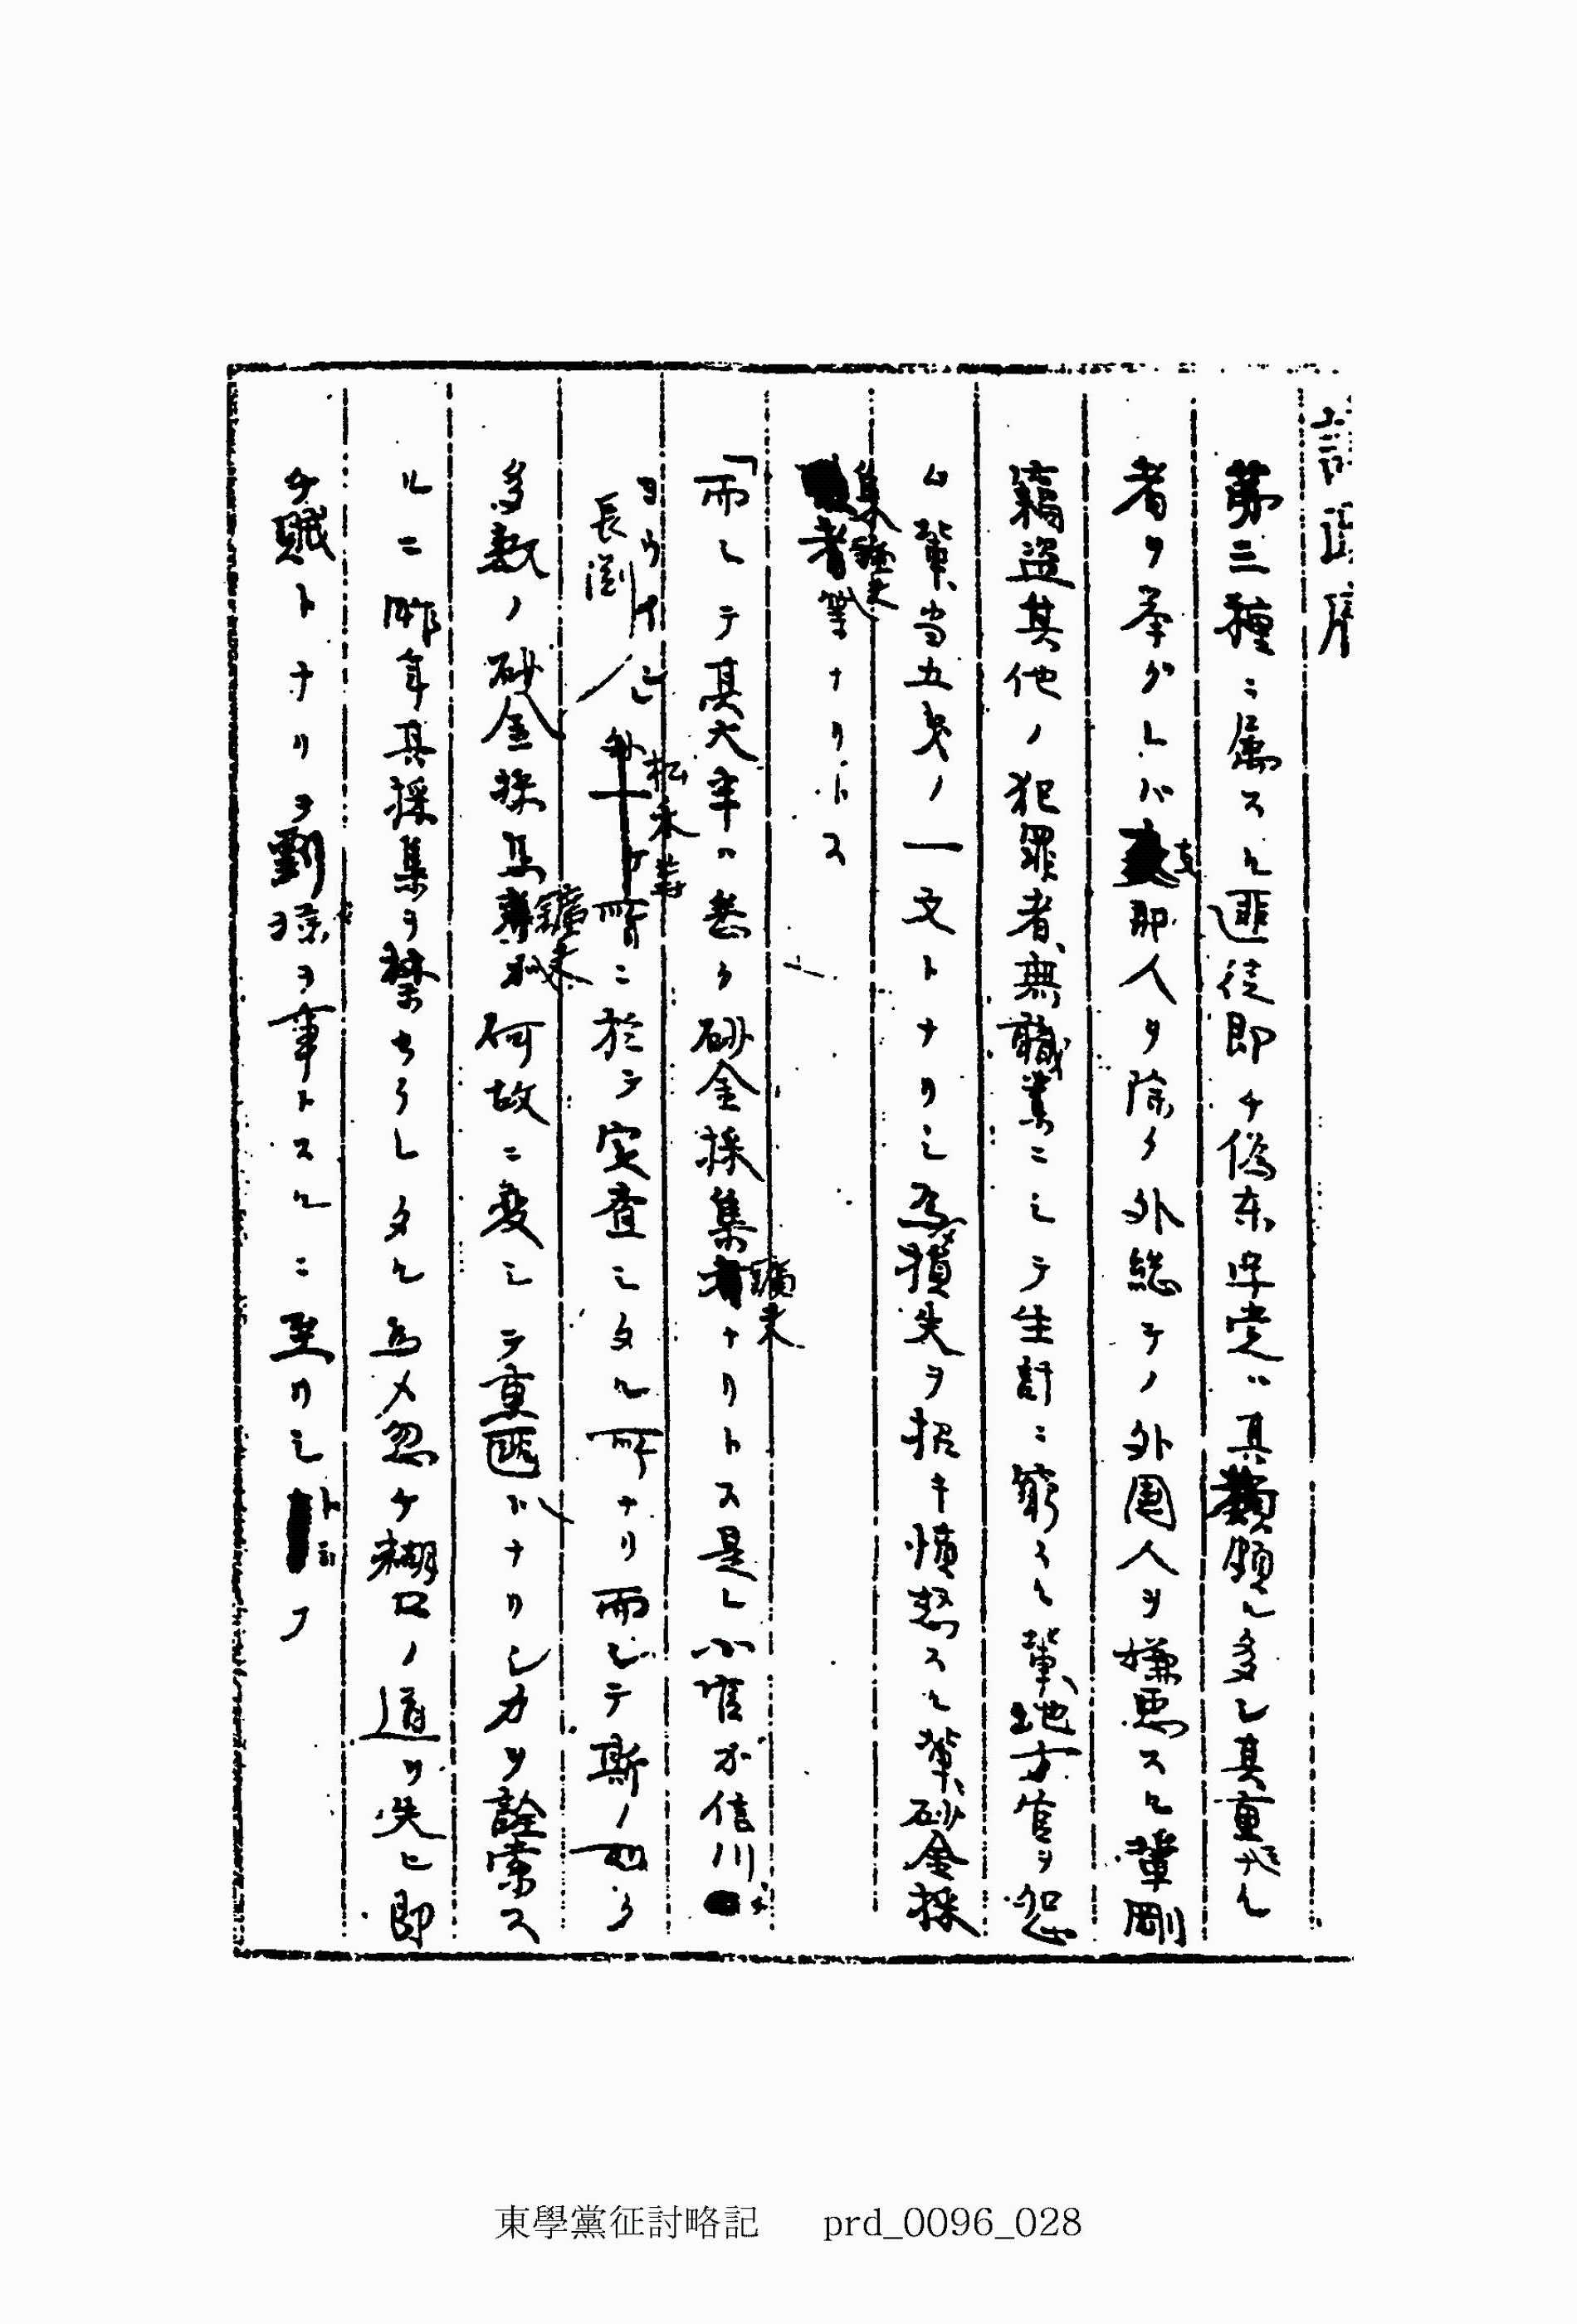 第三種ニ属スル匪徒即チ偽东学党ハ其類頗ル多シ其重ナル
者ヲ挙グレバ支那人ヲ除ク外総テノ外國人ヲ嫌悪スル輩剛
竊盗其他ノ犯罪者、無職業ニシテ生計ニ窮スル輩、地方官ヲ怨
ム輩、当五銭ノ一文トナリシ為損失ヲ招キ憤怒スル輩、砂金採
集鑛夫等ナリトス
「而シテ其大半ハ悉ク砂金採集鑛夫ナリトス是レ小官ガ信川
長淵松禾等ニ於テ実査シタル所ナリ而シテ斯ノ如ク
多数ノ砂金採集鑛夫ガ何故ニ変シテ重匪トナリシカヲ詮索ス
ルニ昨年其採集ヲ禁セラレタル為メ忽チ糊口ノ道ヲ失ヒ即
チ賊トナリ剽掠ヲ事トスルニ至リシト云フ
東學黨征討略記 prd_0096_028